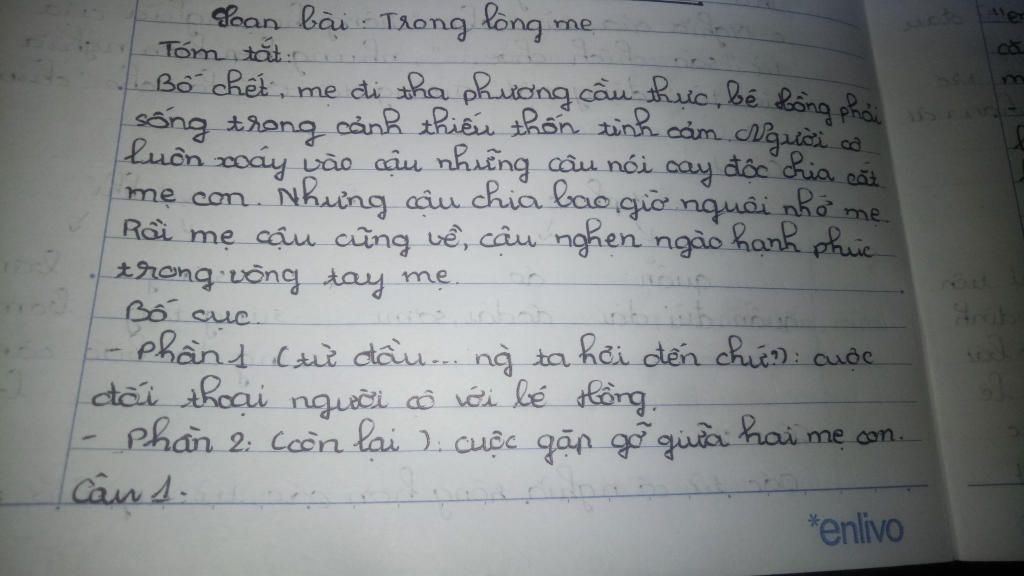 Soạn bài Trong lòng mẹ
Tóm tắt:
Bố chết, mẹ đi tha phương cầu thực, bé Hồng phải
sống trong cảnh thiếu thốn tình cảm. Người cô
luôn xoáy vào cậu những câu nói cay độc chia cắt
mẹ con. Nhưng cậu chia bao giờ nguôi nhớ mẹ.
Rồi mẹ cậu cũng về, cậu nghẹn ngào hạnh phúc
trong vòng tay mẹ.
Bố cục.
- Phần 1 (từ đầu... ng` ta hỏi đến chứ?): cuộc
đối thoại người cô với bé Hồng.
- Phần 2: (còn lại): cuộc gặp gỡ giữa hai mẹ con.
Câu 1.
*enlivo